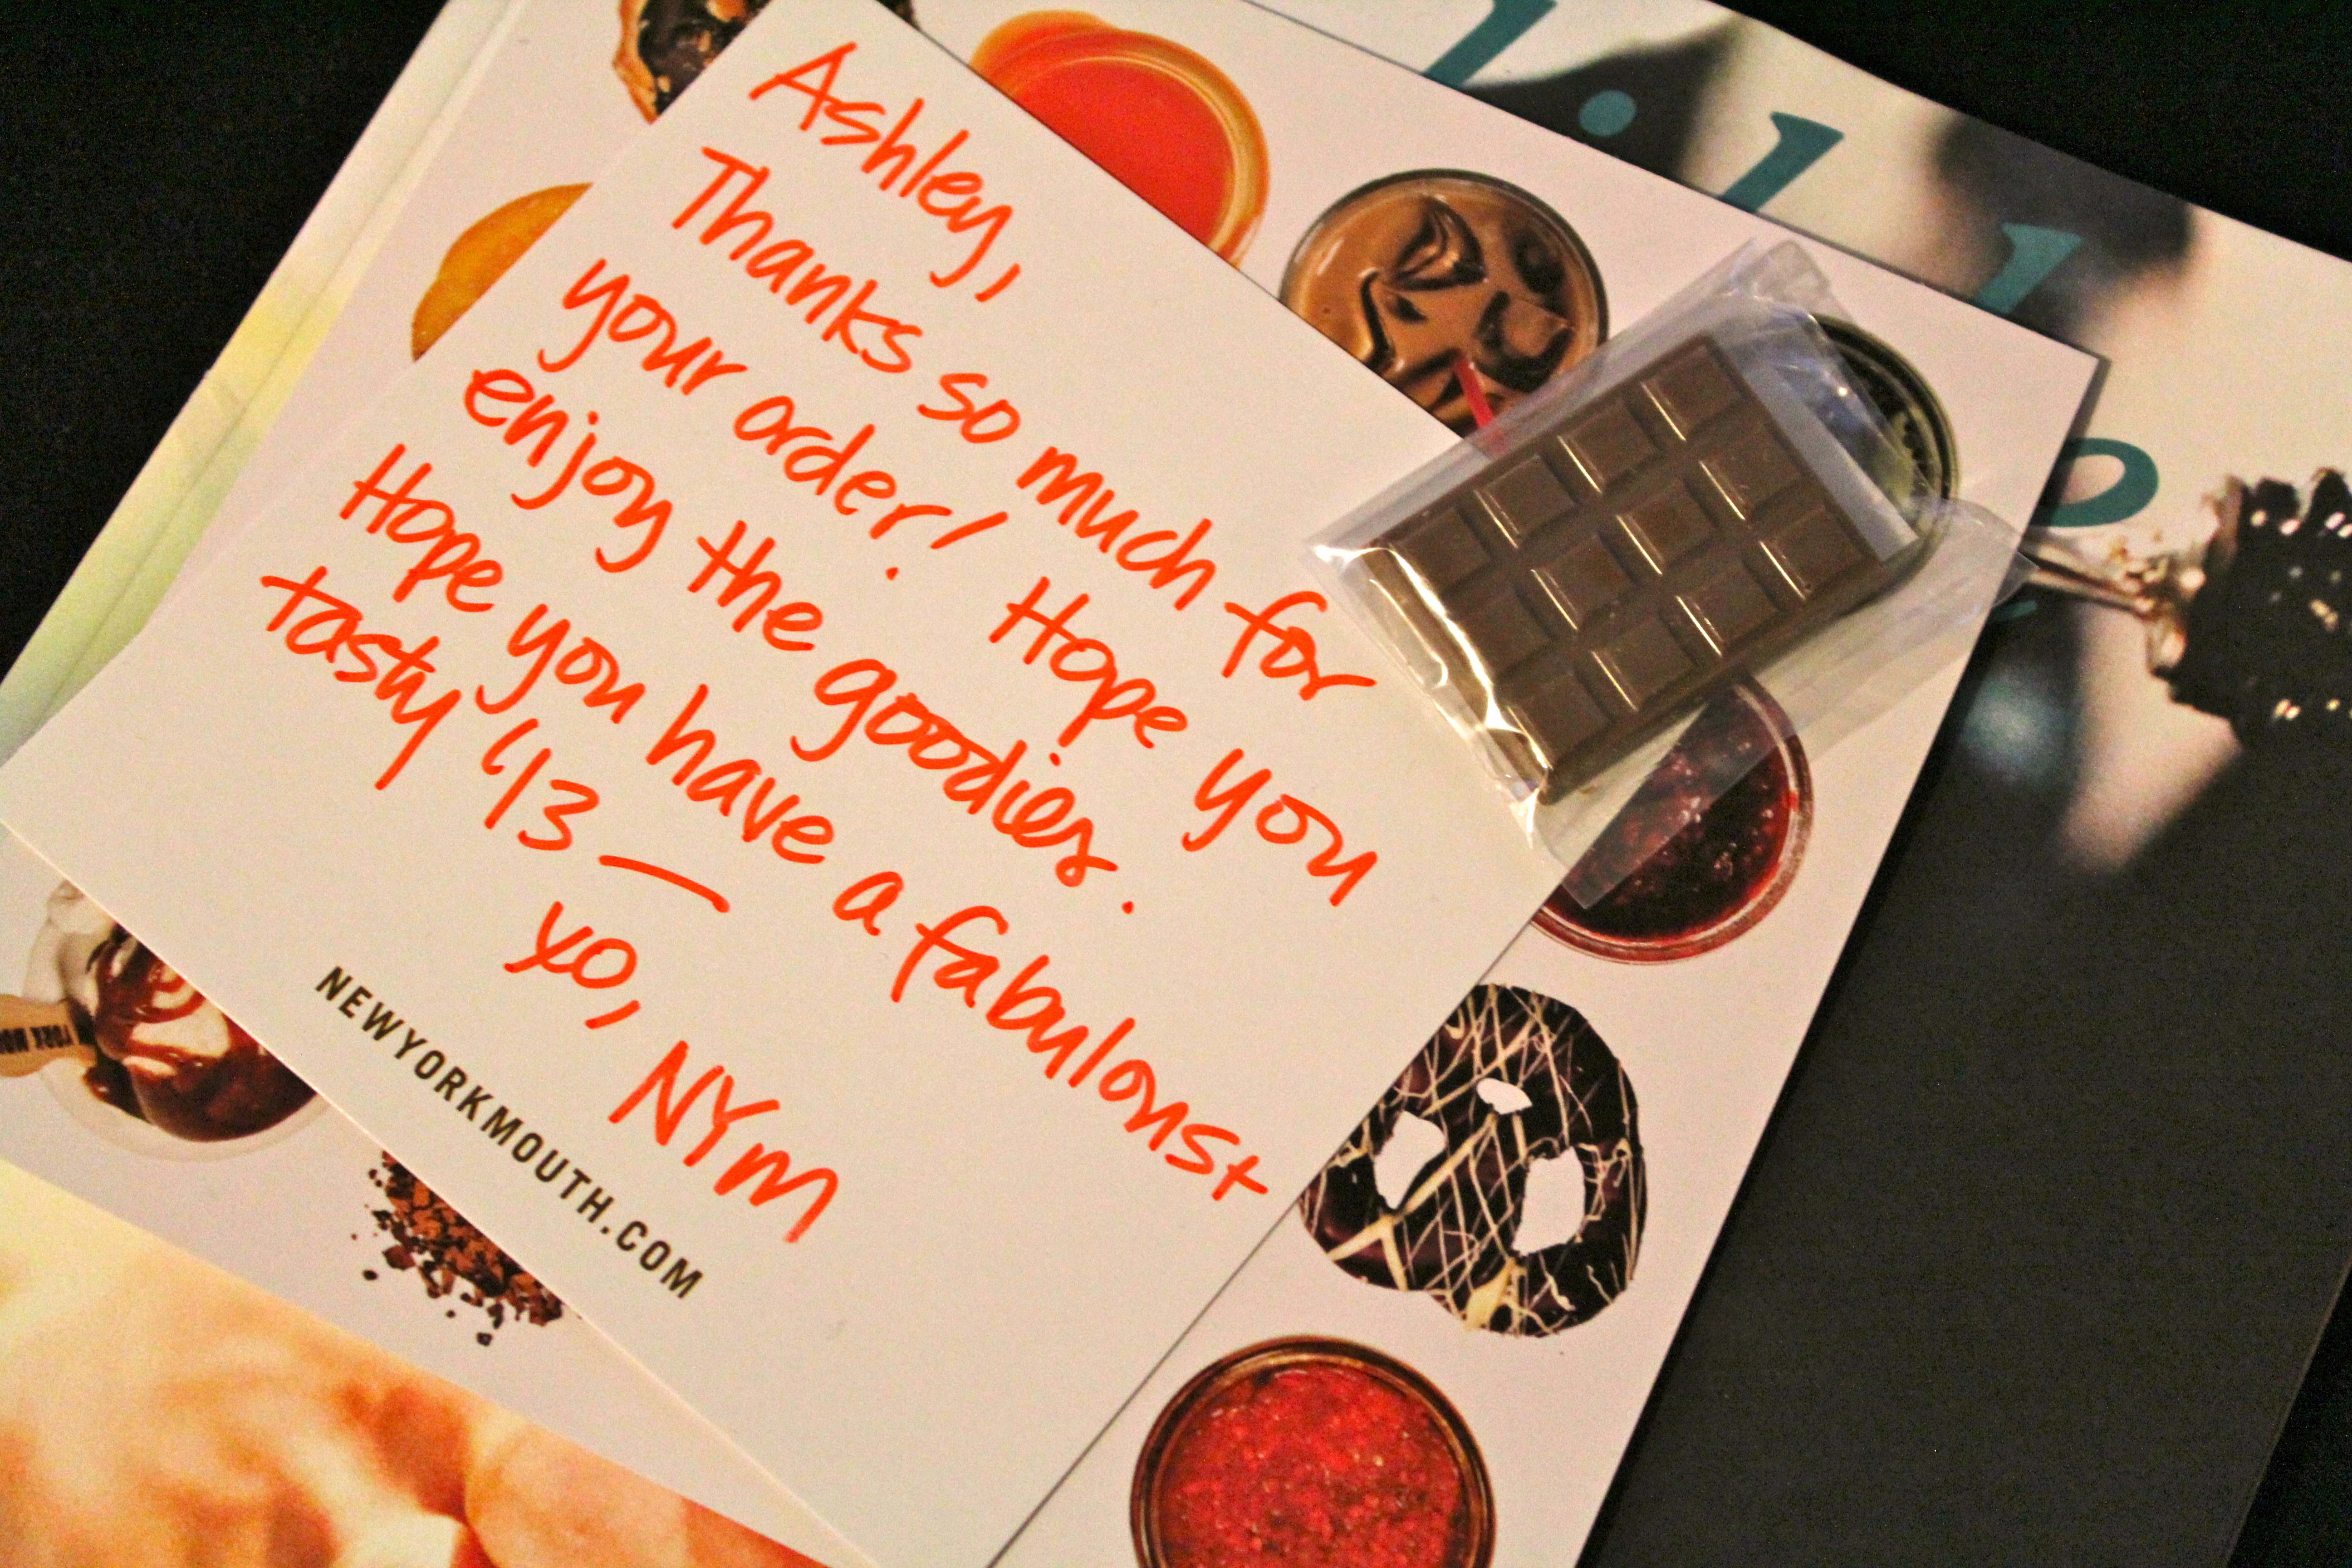 Ashley,
Thanks so much for
your order! Hope you
enjoy the goodies.
Hope you have a fabulous +
tasty '13 —
xo, NYM
NEWYORKMOUTH.COM